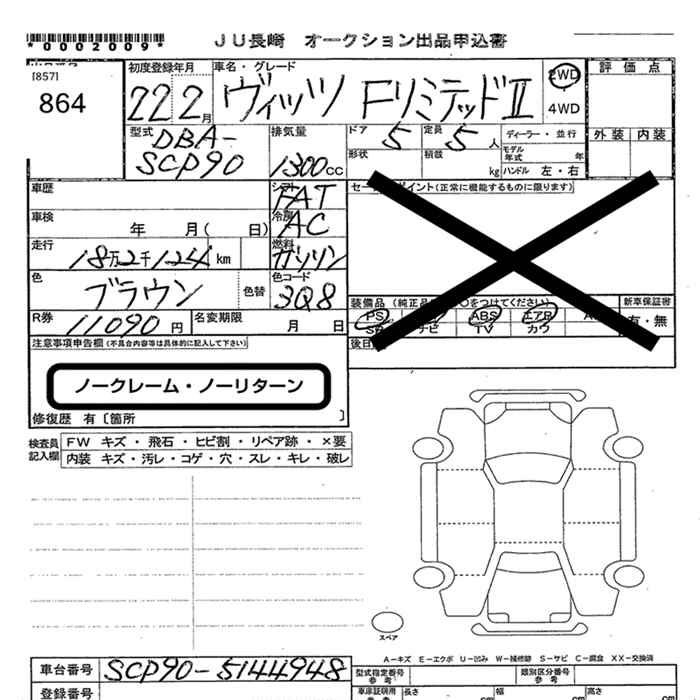 *0002009*
JU長崎 オークション出品申込書
[857]
864
初度登録年月
22 2月
車名・グレード
ヴィッツ FリミテッドⅡ
2WD
4WD
評価点
外装 内装
型式
DBA-
SCP90
排気量
1300cc
ドア
5
定員
5人
形状
積載
kg
ディーラー・並行
モデル年式 年
ハンドル 左・右
車歴
シフト
FAT
車検
年 月( 日)
冷房
AC
走行
18万2千124km
燃料
ガソリン
色
ブラウン
色替
色コード
3Q8
R券
11090円
名変期限
月 日
(正常に機能するものに限ります)
装備品
PS
ABS
エアB
TV
カワ
新車保証書
有・無
注意事項申告欄(不具合内容等は具体的に記入して下さい)
ノークレーム・ノーリターン
修復歴 有〔箇所 〕
検査員記入欄
FW キズ・飛石・ヒビ割・リペア跡・×要
内装 キズ・汚レ・コゲ・穴・スレ・キレ・破レ
スペア
A-キズ E-エクボ U-凹み W-補修跡 S-サビ C-腐食 XX-交換済
車台番号
SCP90-5144948
登録番号
型式指定番号
参考
類別区分番号
参考
車庫証明用
長さ
cm
幅
cm
高さ
cm